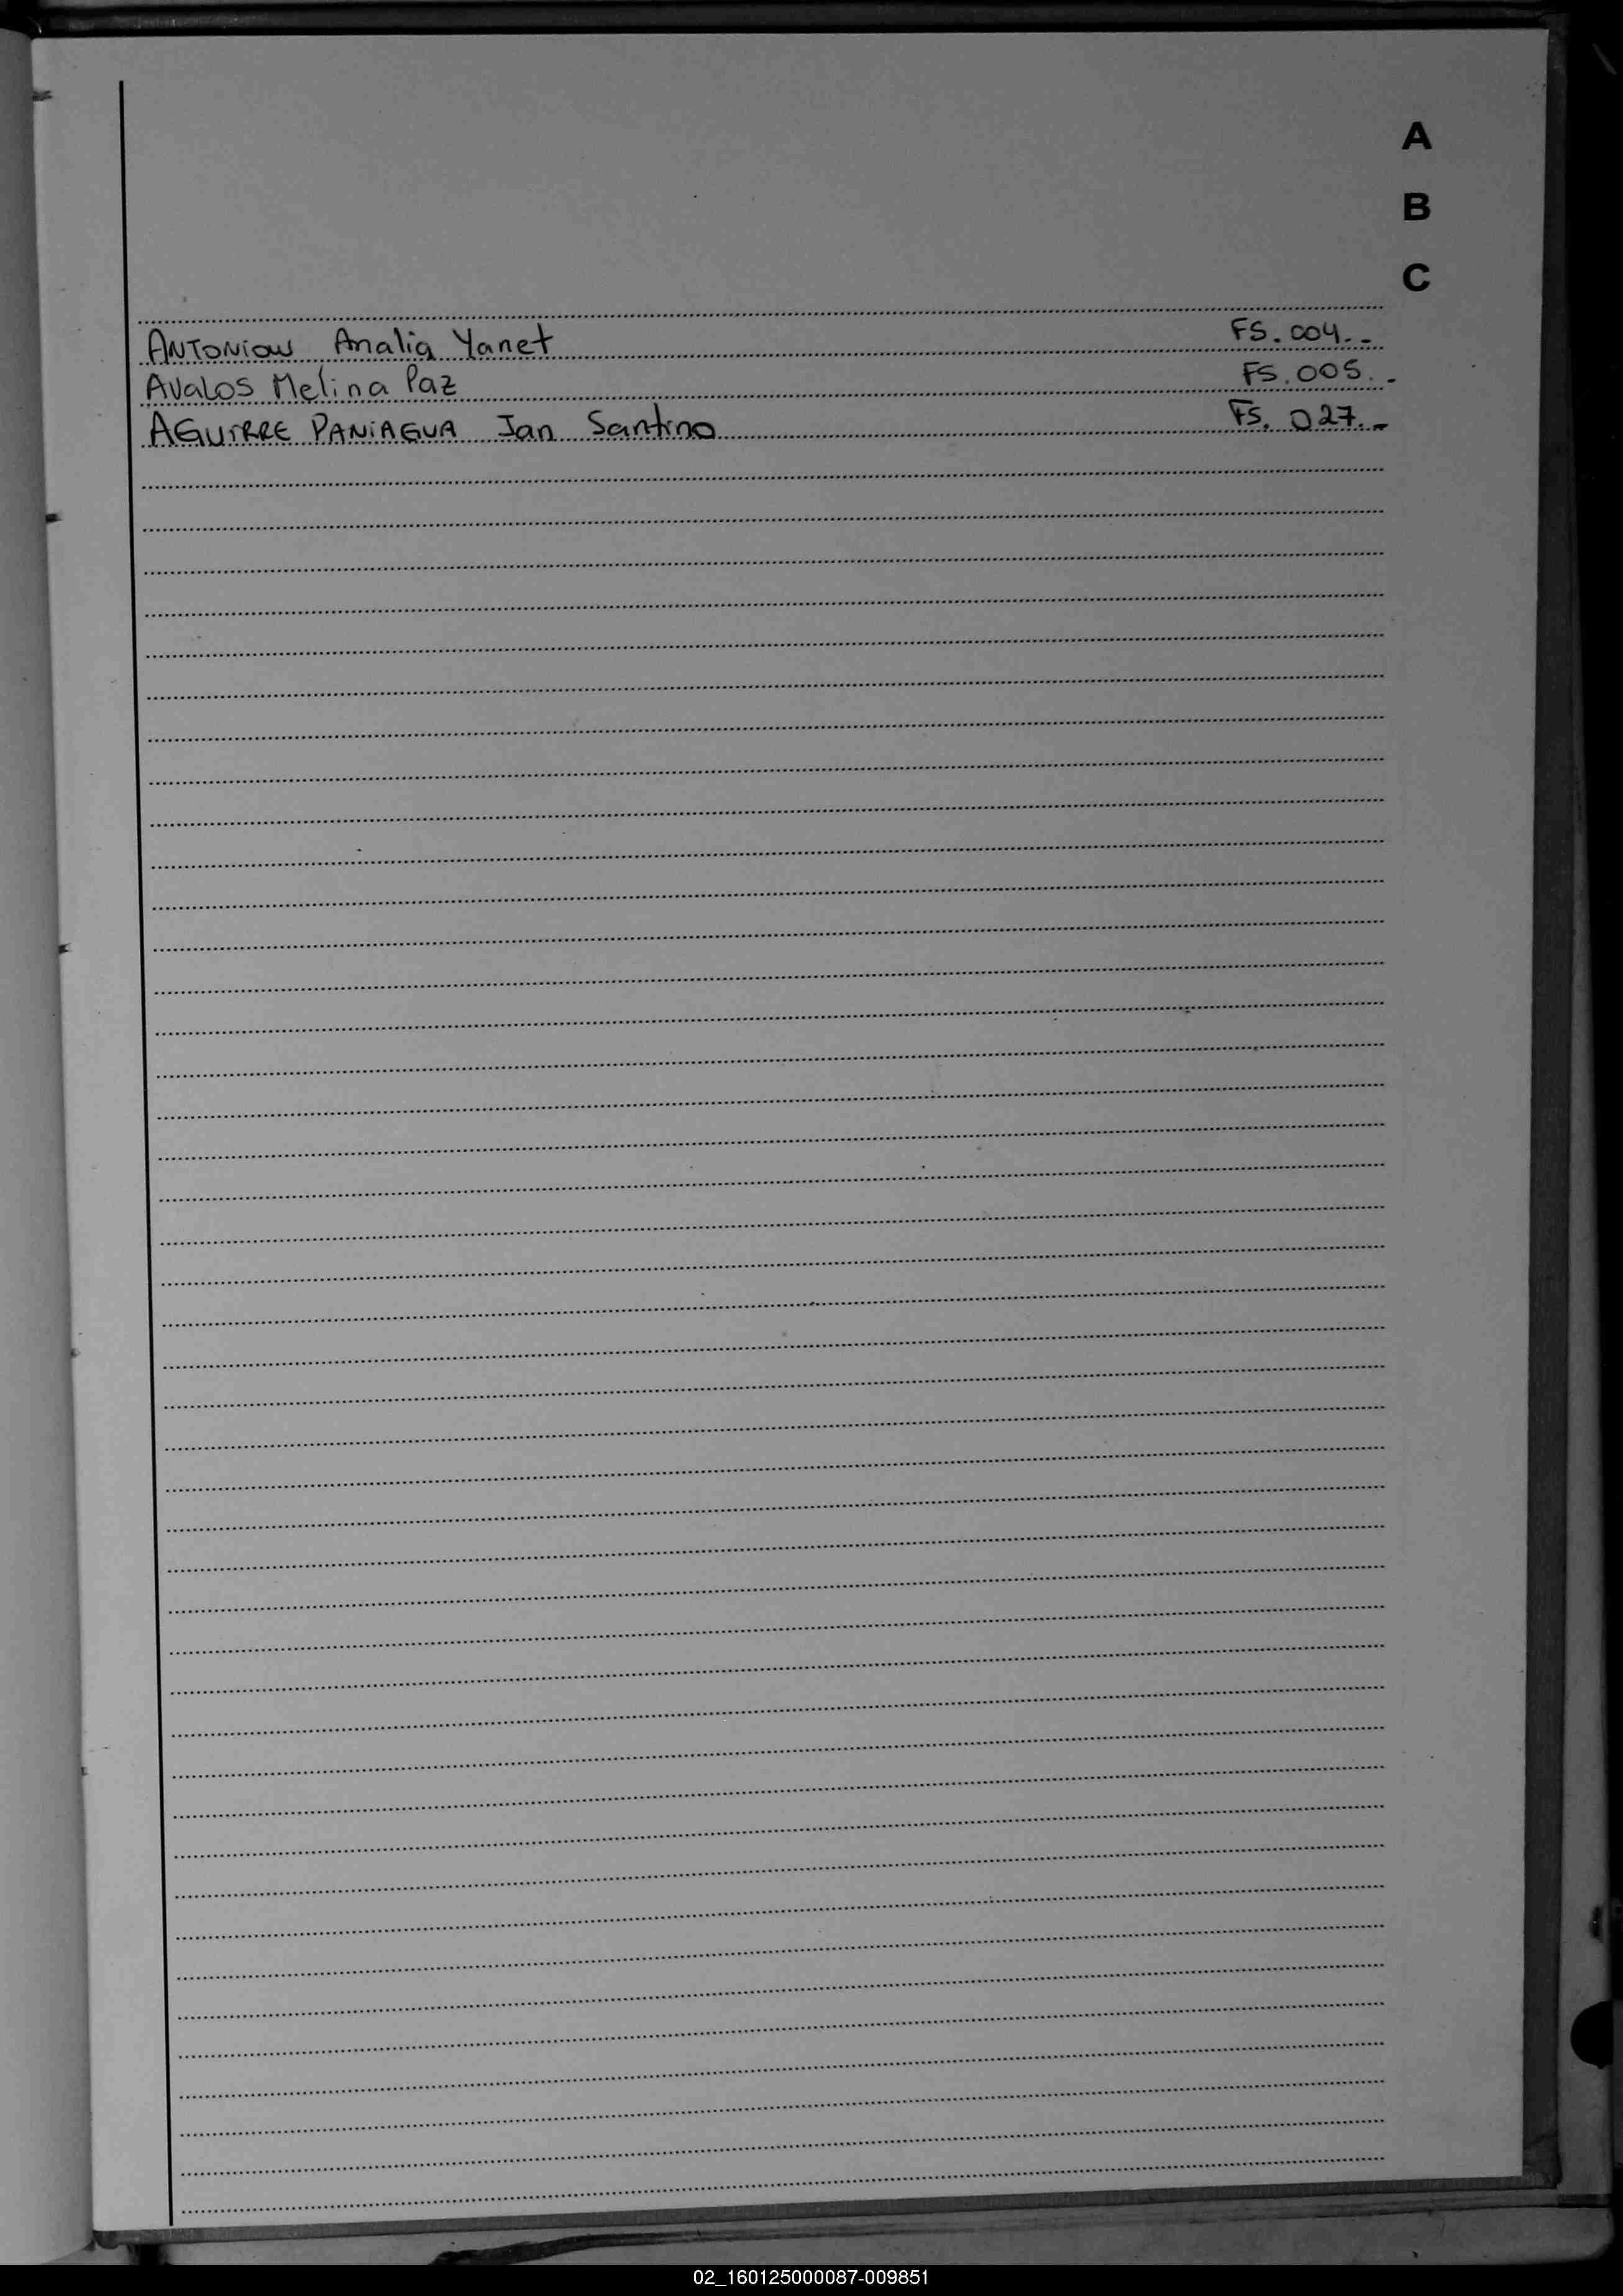 A
B
C
ANTONIOW Analia Yanet FS. 004.-
AVALOS Melina Paz FS. 005.-
AGUIRRE PANIAGUA Ian Santino FS. 027.-
02_160125000087-009851